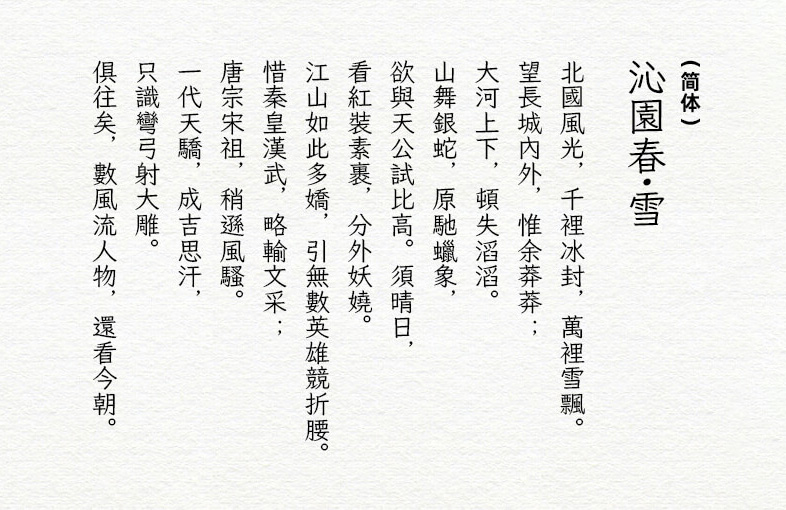 (简体)
沁園春·雪
北國風光，千裡冰封，萬裡雪飄。
望長城內外，惟余莽莽；
大河上下，頓失滔滔。
山舞銀蛇，原馳蠟象，
欲與天公試比高。須晴日，
看紅裝素裹，分外妖嬈。
江山如此多嬌，引無數英雄競折腰。
惜秦皇漢武，略輸文采；
唐宗宋祖，稍遜風騷。
一代天驕，成吉思汗，
只識彎弓射大雕。
俱往矣，數風流人物，還看今朝。